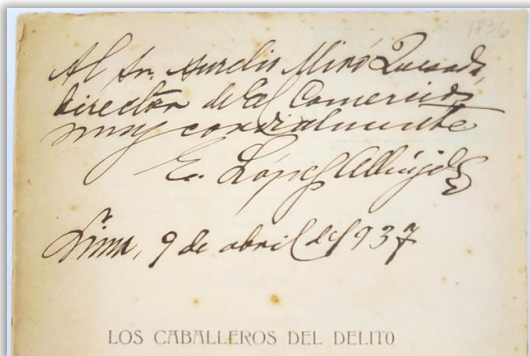 1836
Al Sr. Aurelio Miró Quesada,
Director de El Comercio,
muy cordialmente
E. López Albújar
Lima, 9 de abril de 1937
LOS CABALLEROS DEL DELITO